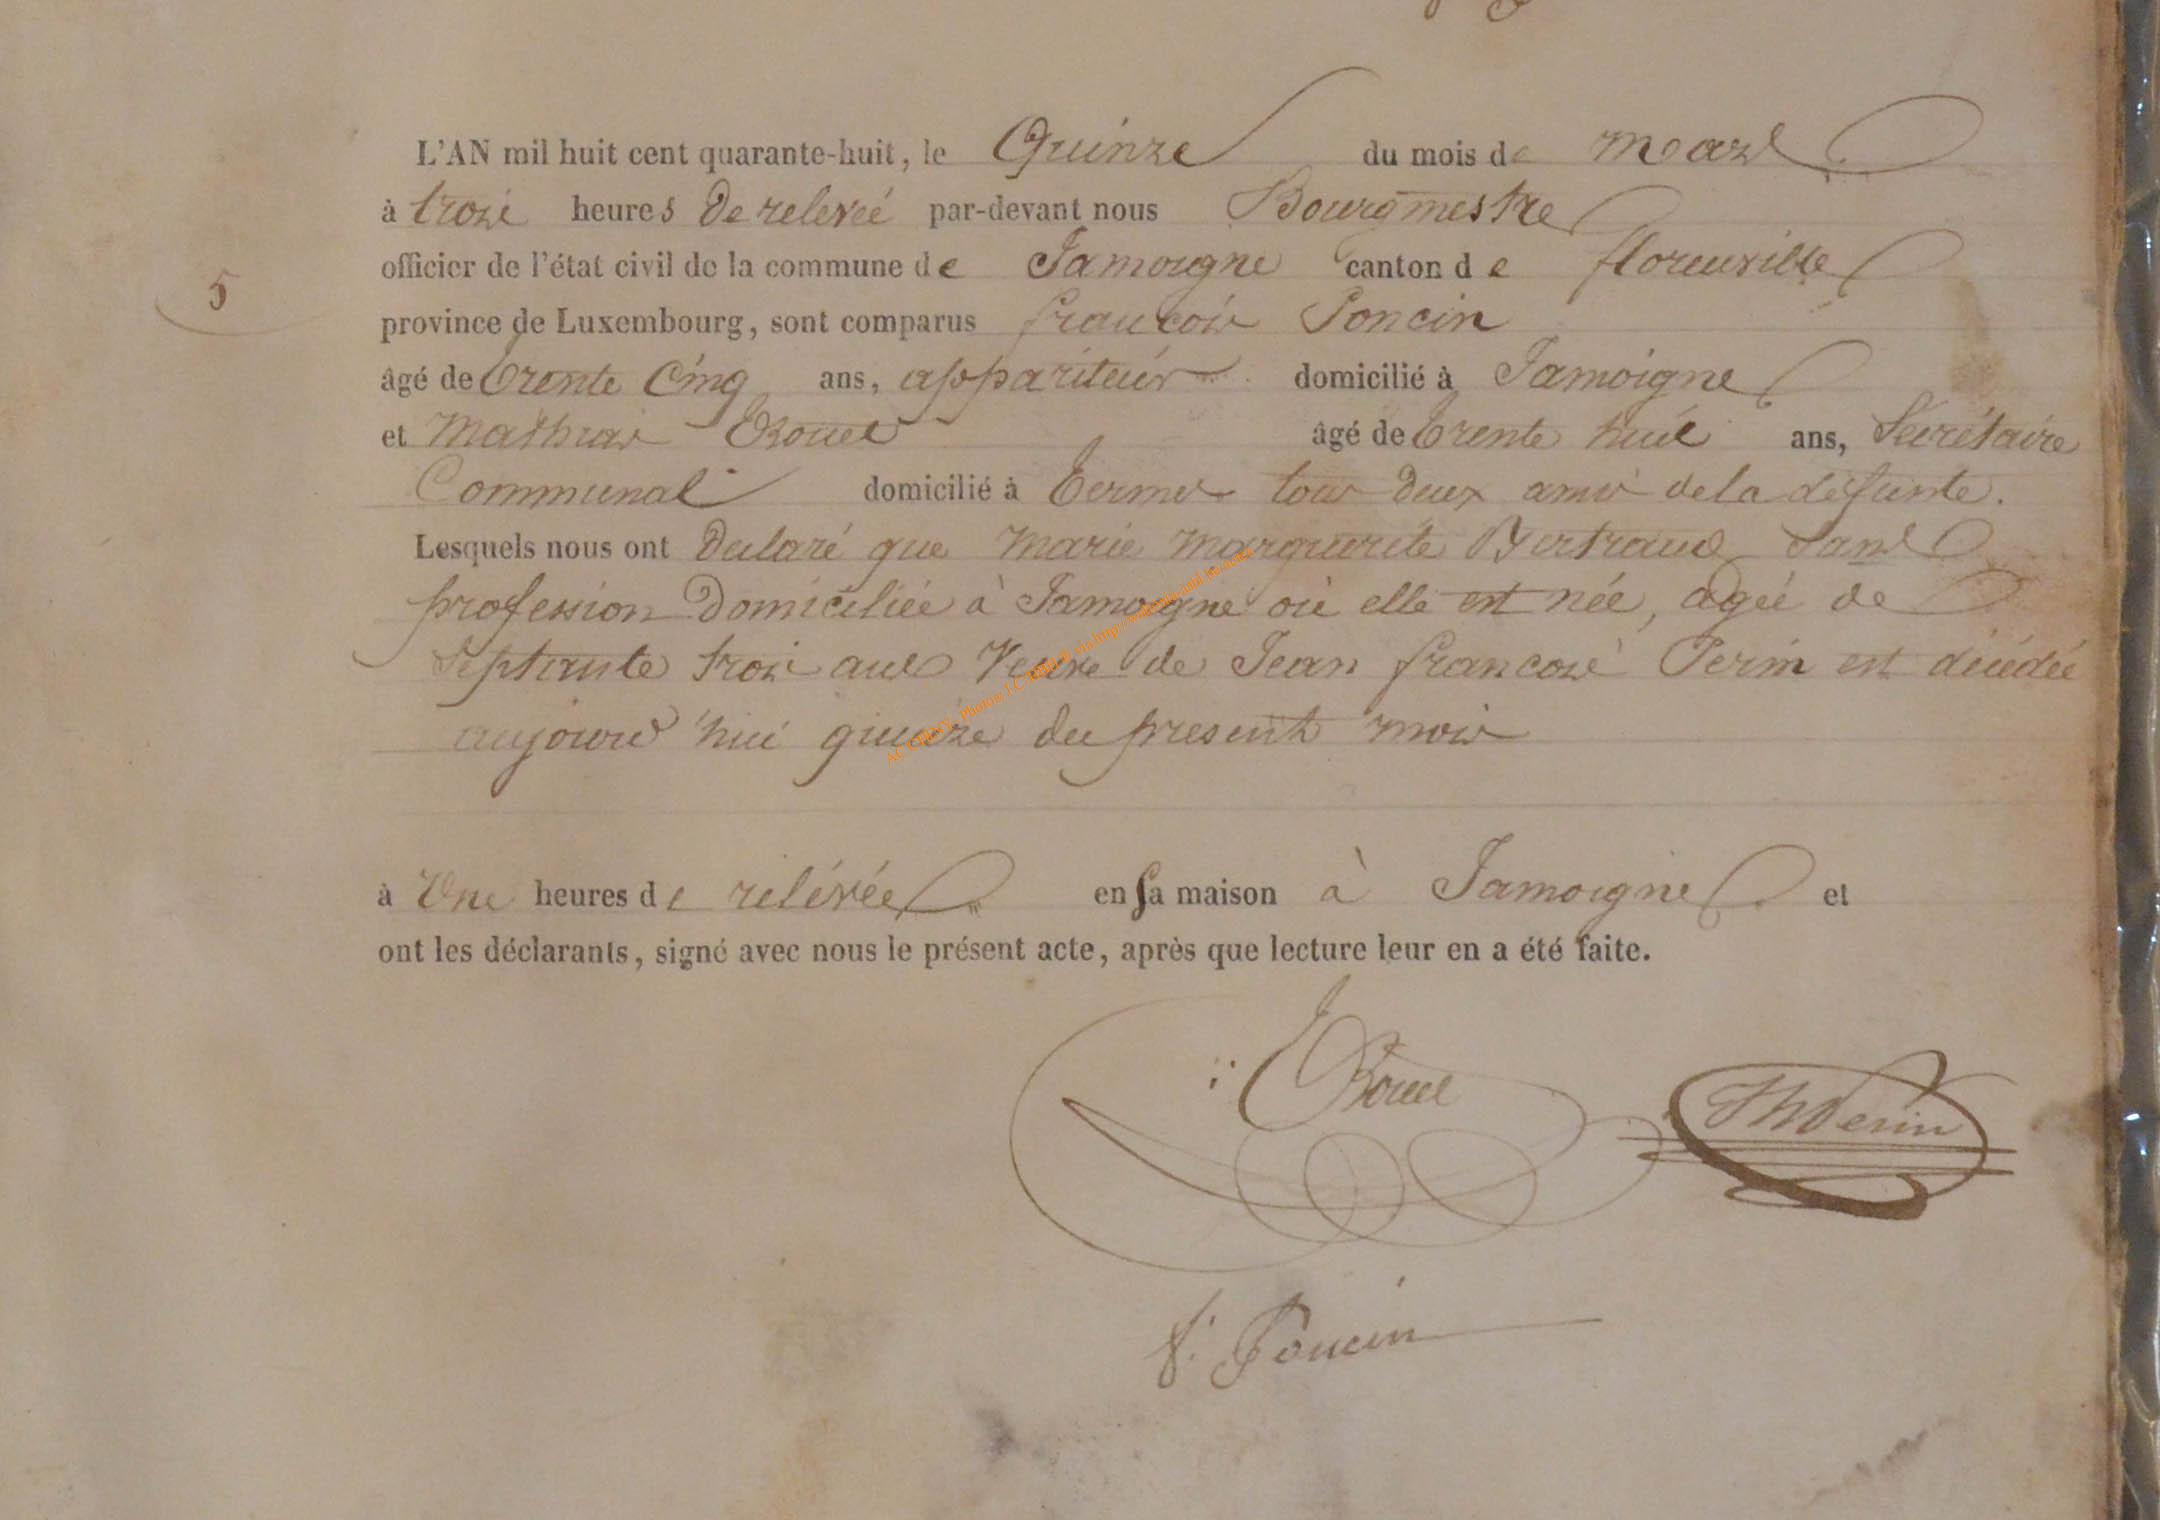 L'AN mil huit cent quarante-huit, le Quinze du mois de mars
à trois heures de relevée par-devant nous Bourgmestre
officier de l'état civil de la commune de Jamoigne canton de florenville
5
province de Luxembourg, sont comparus francois Poncin
âgé de trente Cinq ans, appariteur domicilié à Jamoigne
et Mathias âgé de trente huit ans, Secrétaire
Communal domicilié à termes tous deux amis de la défunte.
Lesquels nous ont declaré que Marie Marguerite Bertrand Sans
profession Domiciliée à Jamoigne où elle est née, agée de
Septante trois ans Veuve de Jean francois Perin est décédée
aujourd'hui quinze du present mois
à Une heures de relévée en sa maison à Jamoigne et
ont les déclarants, signé avec nous le présent acte, après que lecture leur en a été faite.
f. Poncin